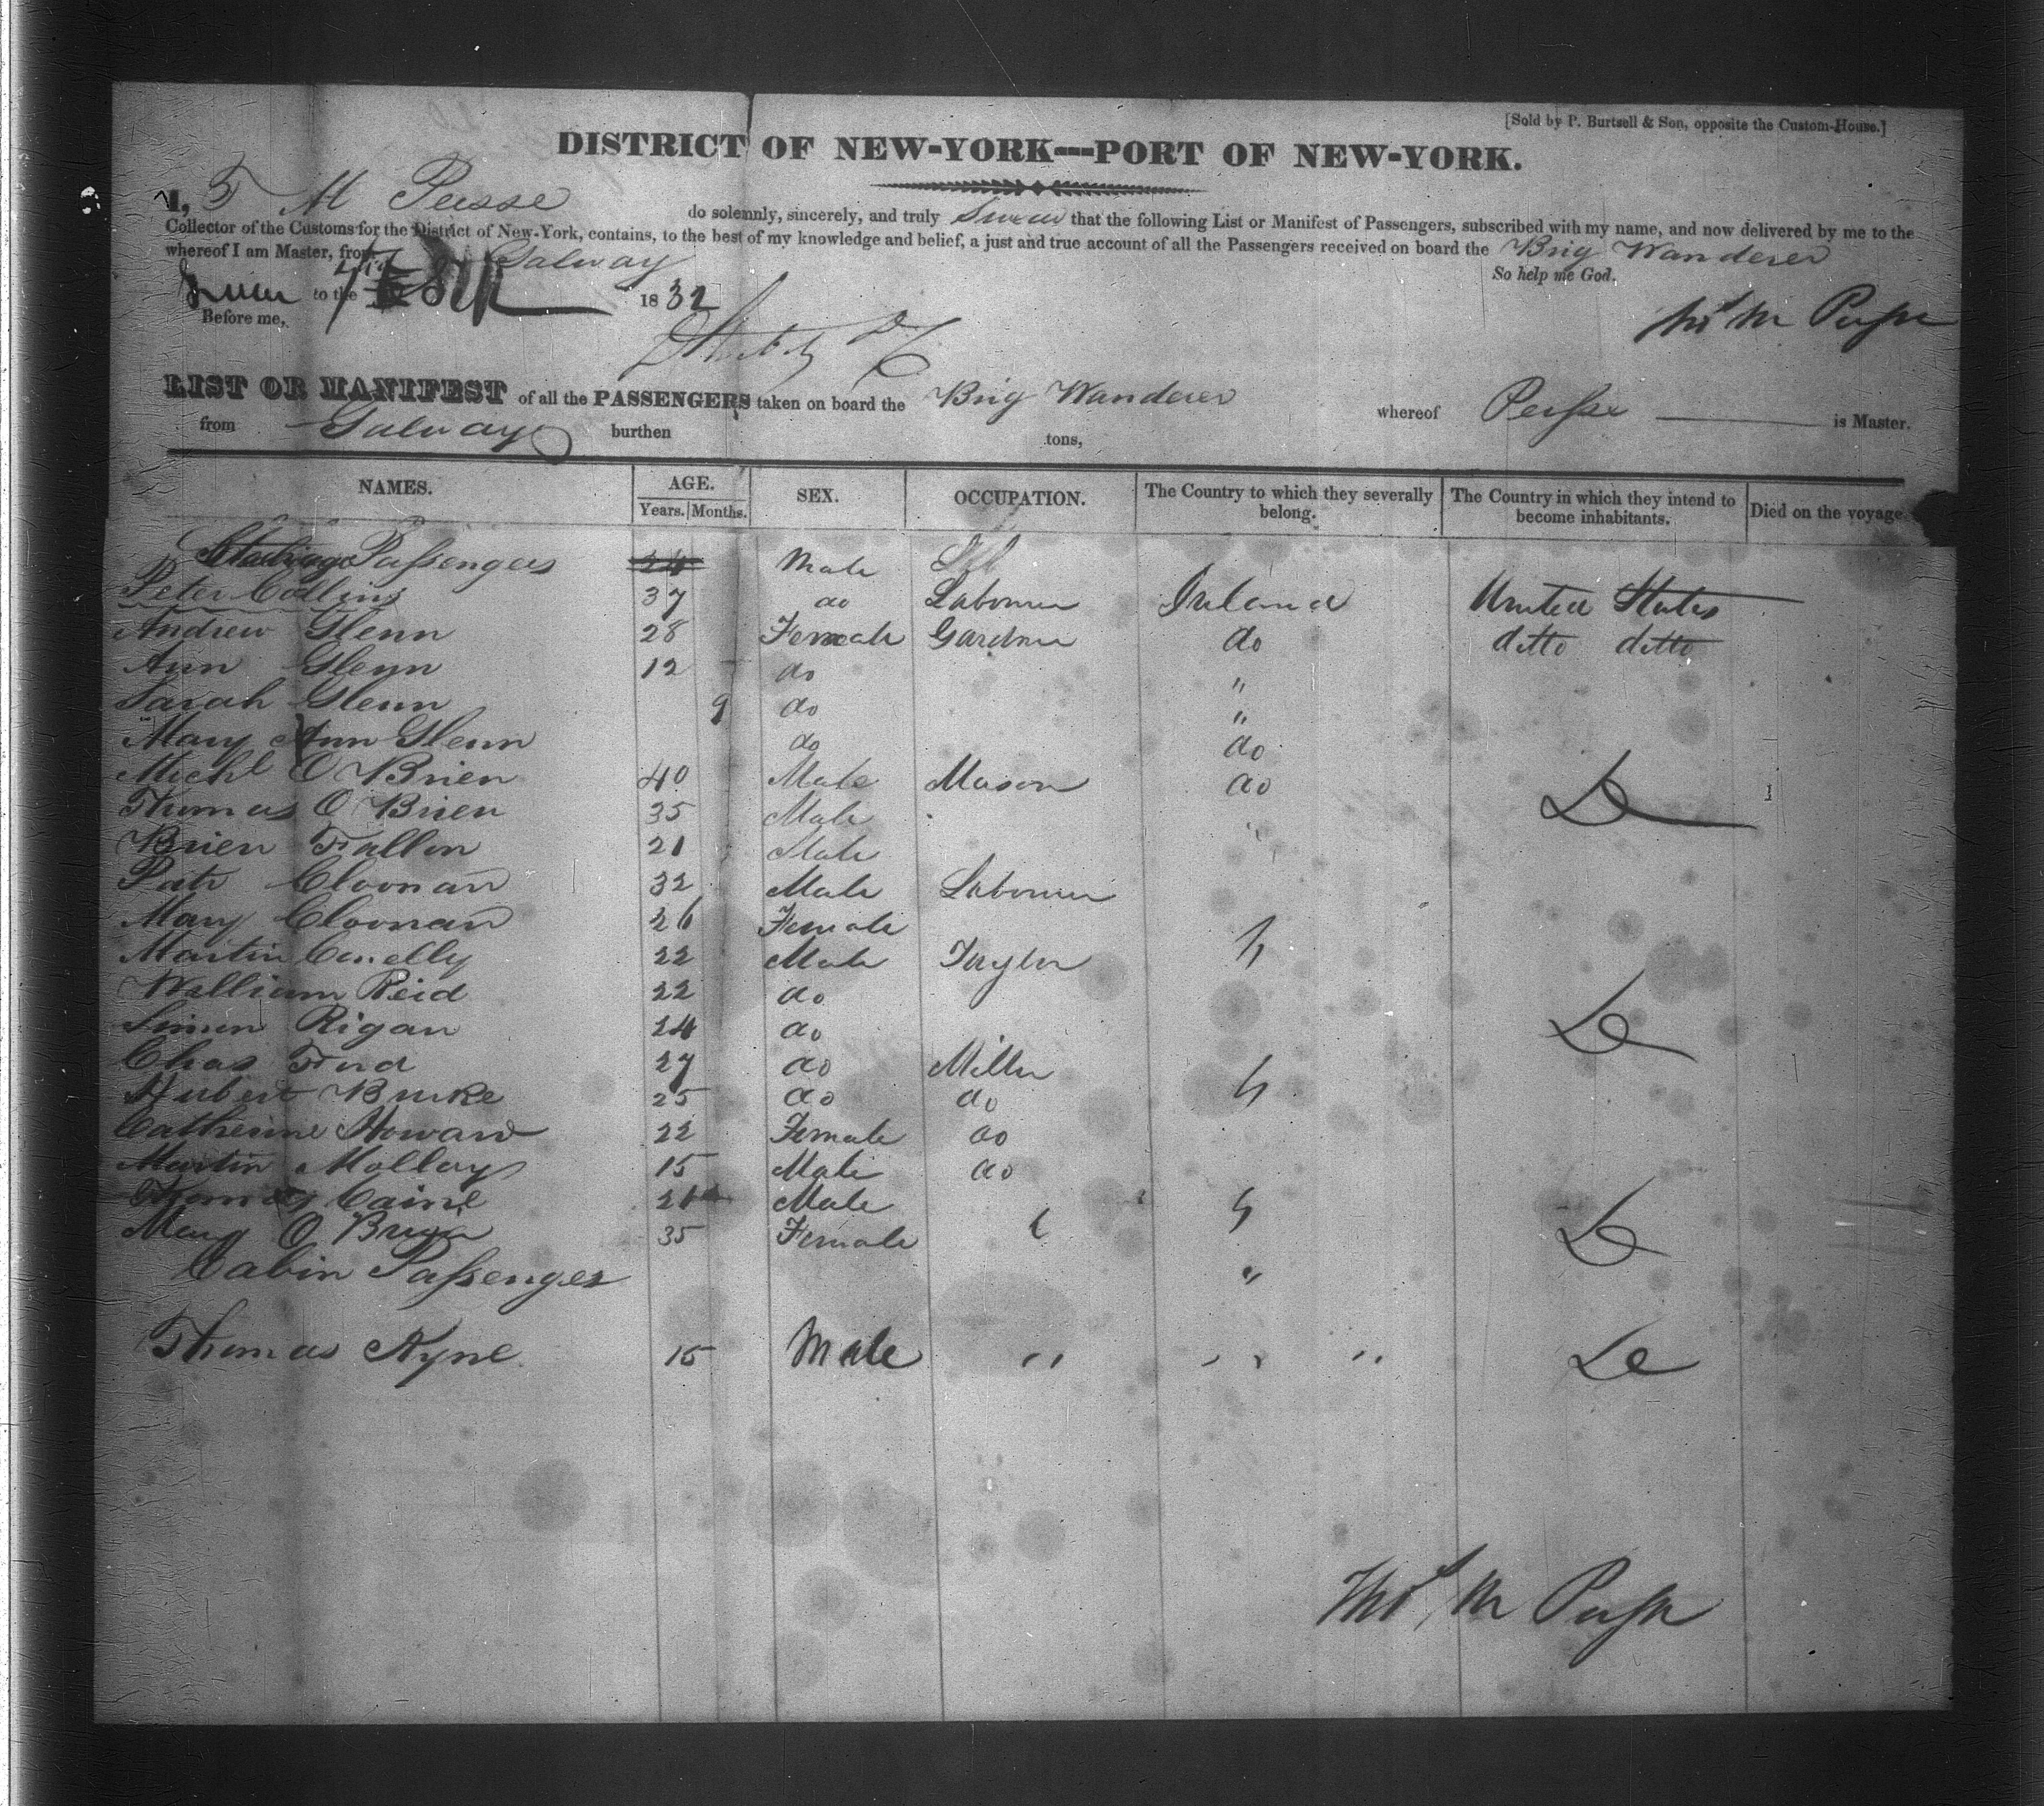 [Sold by P. Burtsell & Son, opposite the Custom-House.]
DISTRICT OF NEW-YORK---PORT OF NEW-YORK.
I, T M Pearse do solemnly, sincerely, and truly Swear that the following List or Manifest of Passengers, subscribed with my name, and now delivered by me to the
Collector of the Customs for the District of New-York, contains, to the best of my knowledge and belief, a just and true account of all the Passengers received on board the Brig Wanderer
whereof I am Master, from Galway
So help me God.
to the 1832
Before me,
Thos M Perſse
LIST OR MANIFEST of all the PASSENGERS taken on board the Brig Wanderer whereof Perſse is Master.
from Galway burthen tons,
NAMES. AGE. SEX. OCCUPATION. The Country to which they severally belong. The Country in which they intend to become inhabitants. Died on the voyage
Years. Months.
Paſsengers 24 Male
Peter Collins 37 do Labourer Ireland United States
Andrew Glenn 28 Female Gardner do ditto ditto
Ann Glenn 12 do "
Sarah Glenn 9 do "
Mary Ann Glenn do do
Michl O Brien 40 Male Mason do Do
Thomas O Brien 35 Male "
Brien Fallon 21 Male
Patk Cloonan 32 Male Labourer
Mary Cloonan 26 Female
Martin Conelly 22 Male Taylor
William Reid 22 do
Simon Rigan 24 do Do
Chas Ford 27 do Miller
Hubert Burke 25 do do
Catherine Howard 22 Female do
Martin Molloy 15 Male do
Thomas Caine 21 Male
Mary O Brien 35 Female Do
Cabin Paſsenger "
Thomas Kyne 15 Male " " " Do
Thos M Perſse